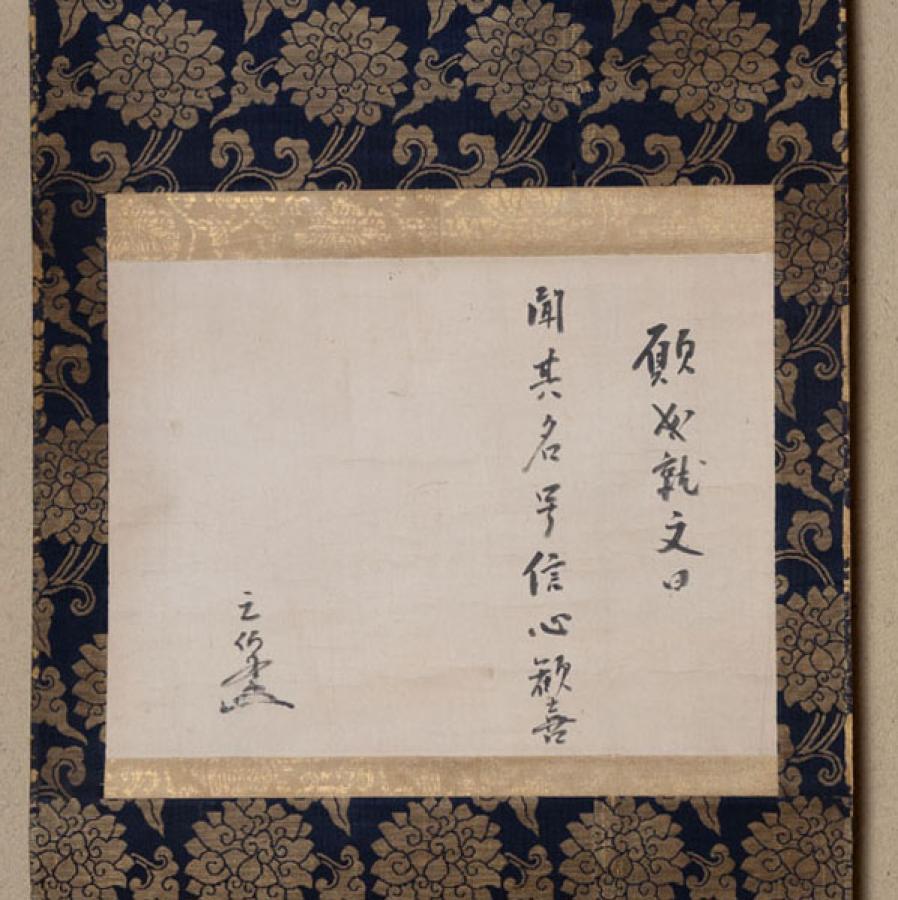 願成就文曰
聞其名号信心歓喜